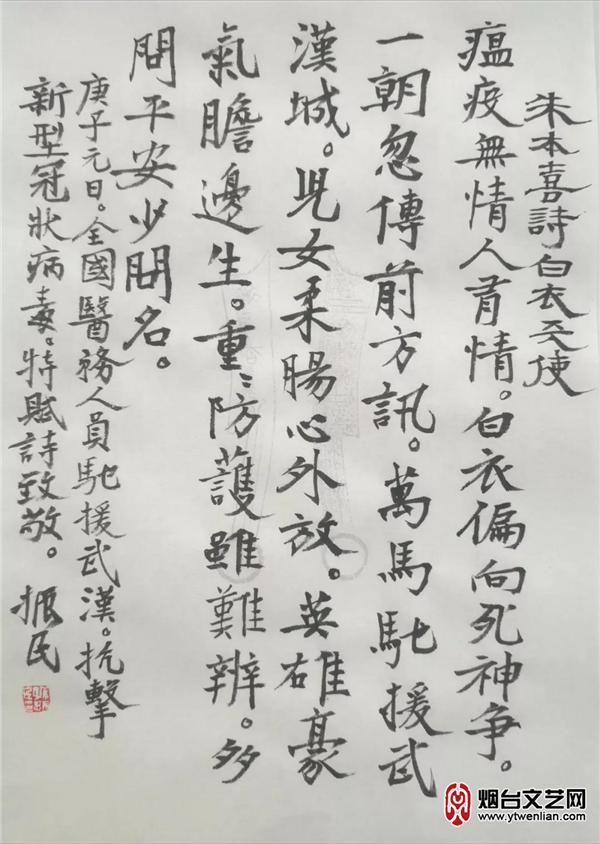 朱本喜詩白衣天使
瘟疫無情人有情。白衣偏向死神争。
一朝忽傳前方訊。萬馬馳援武
漢城。児女柔腸心外放。英雄豪
氣膽邊生。重重防護雖難辨。多
問平安少問名。
庚子元日。全國醫務人員馳援武漢。抗擊
新型冠狀病毒。特賦詩致敬。振民
烟台文艺网
www.ytwenlian.com